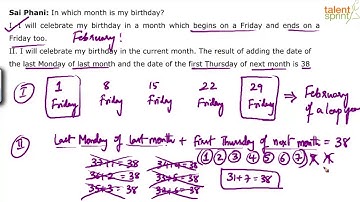 talent
sprint
Sai Phani: In which month is my birthday?
I. I will celebrate my birthday in a month which begins on a Friday and ends on
a Friday too. February!
II. I will celebrate my birthday in the current month. The result of adding the date of
the last Monday of last month and the date of the first Thursday of next month is 38
I 1 8 15 22 29 ⇒ February
Friday Friday Friday Friday Friday of a leap year
II Last Monday of last month + first Thursday of next month = 38
1 2 3 4 5 6 7
36+2=38
35+3=38
31+7=38